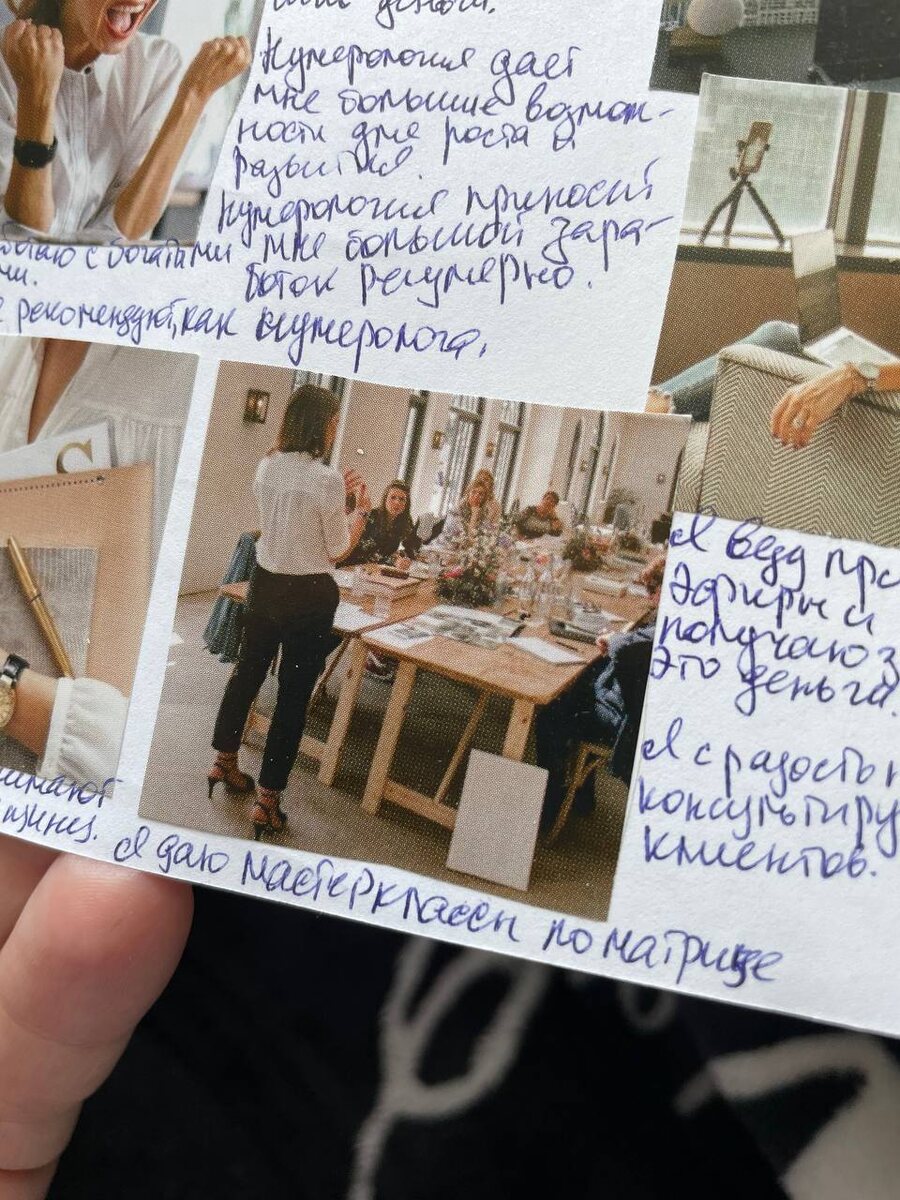 деньги.
Нумерология дает
мне большие возмож-
ности для роста и
развития.
Нумерология приносит
мне большой зара-
боток регулярно.
с богатыми
рекомендуют, как нумеролога.
S
Я веду
эфиры и
получаю з
это деньги.
Я с радостью
консультиру
клиентов.
Я даю мастерклассы по матрице